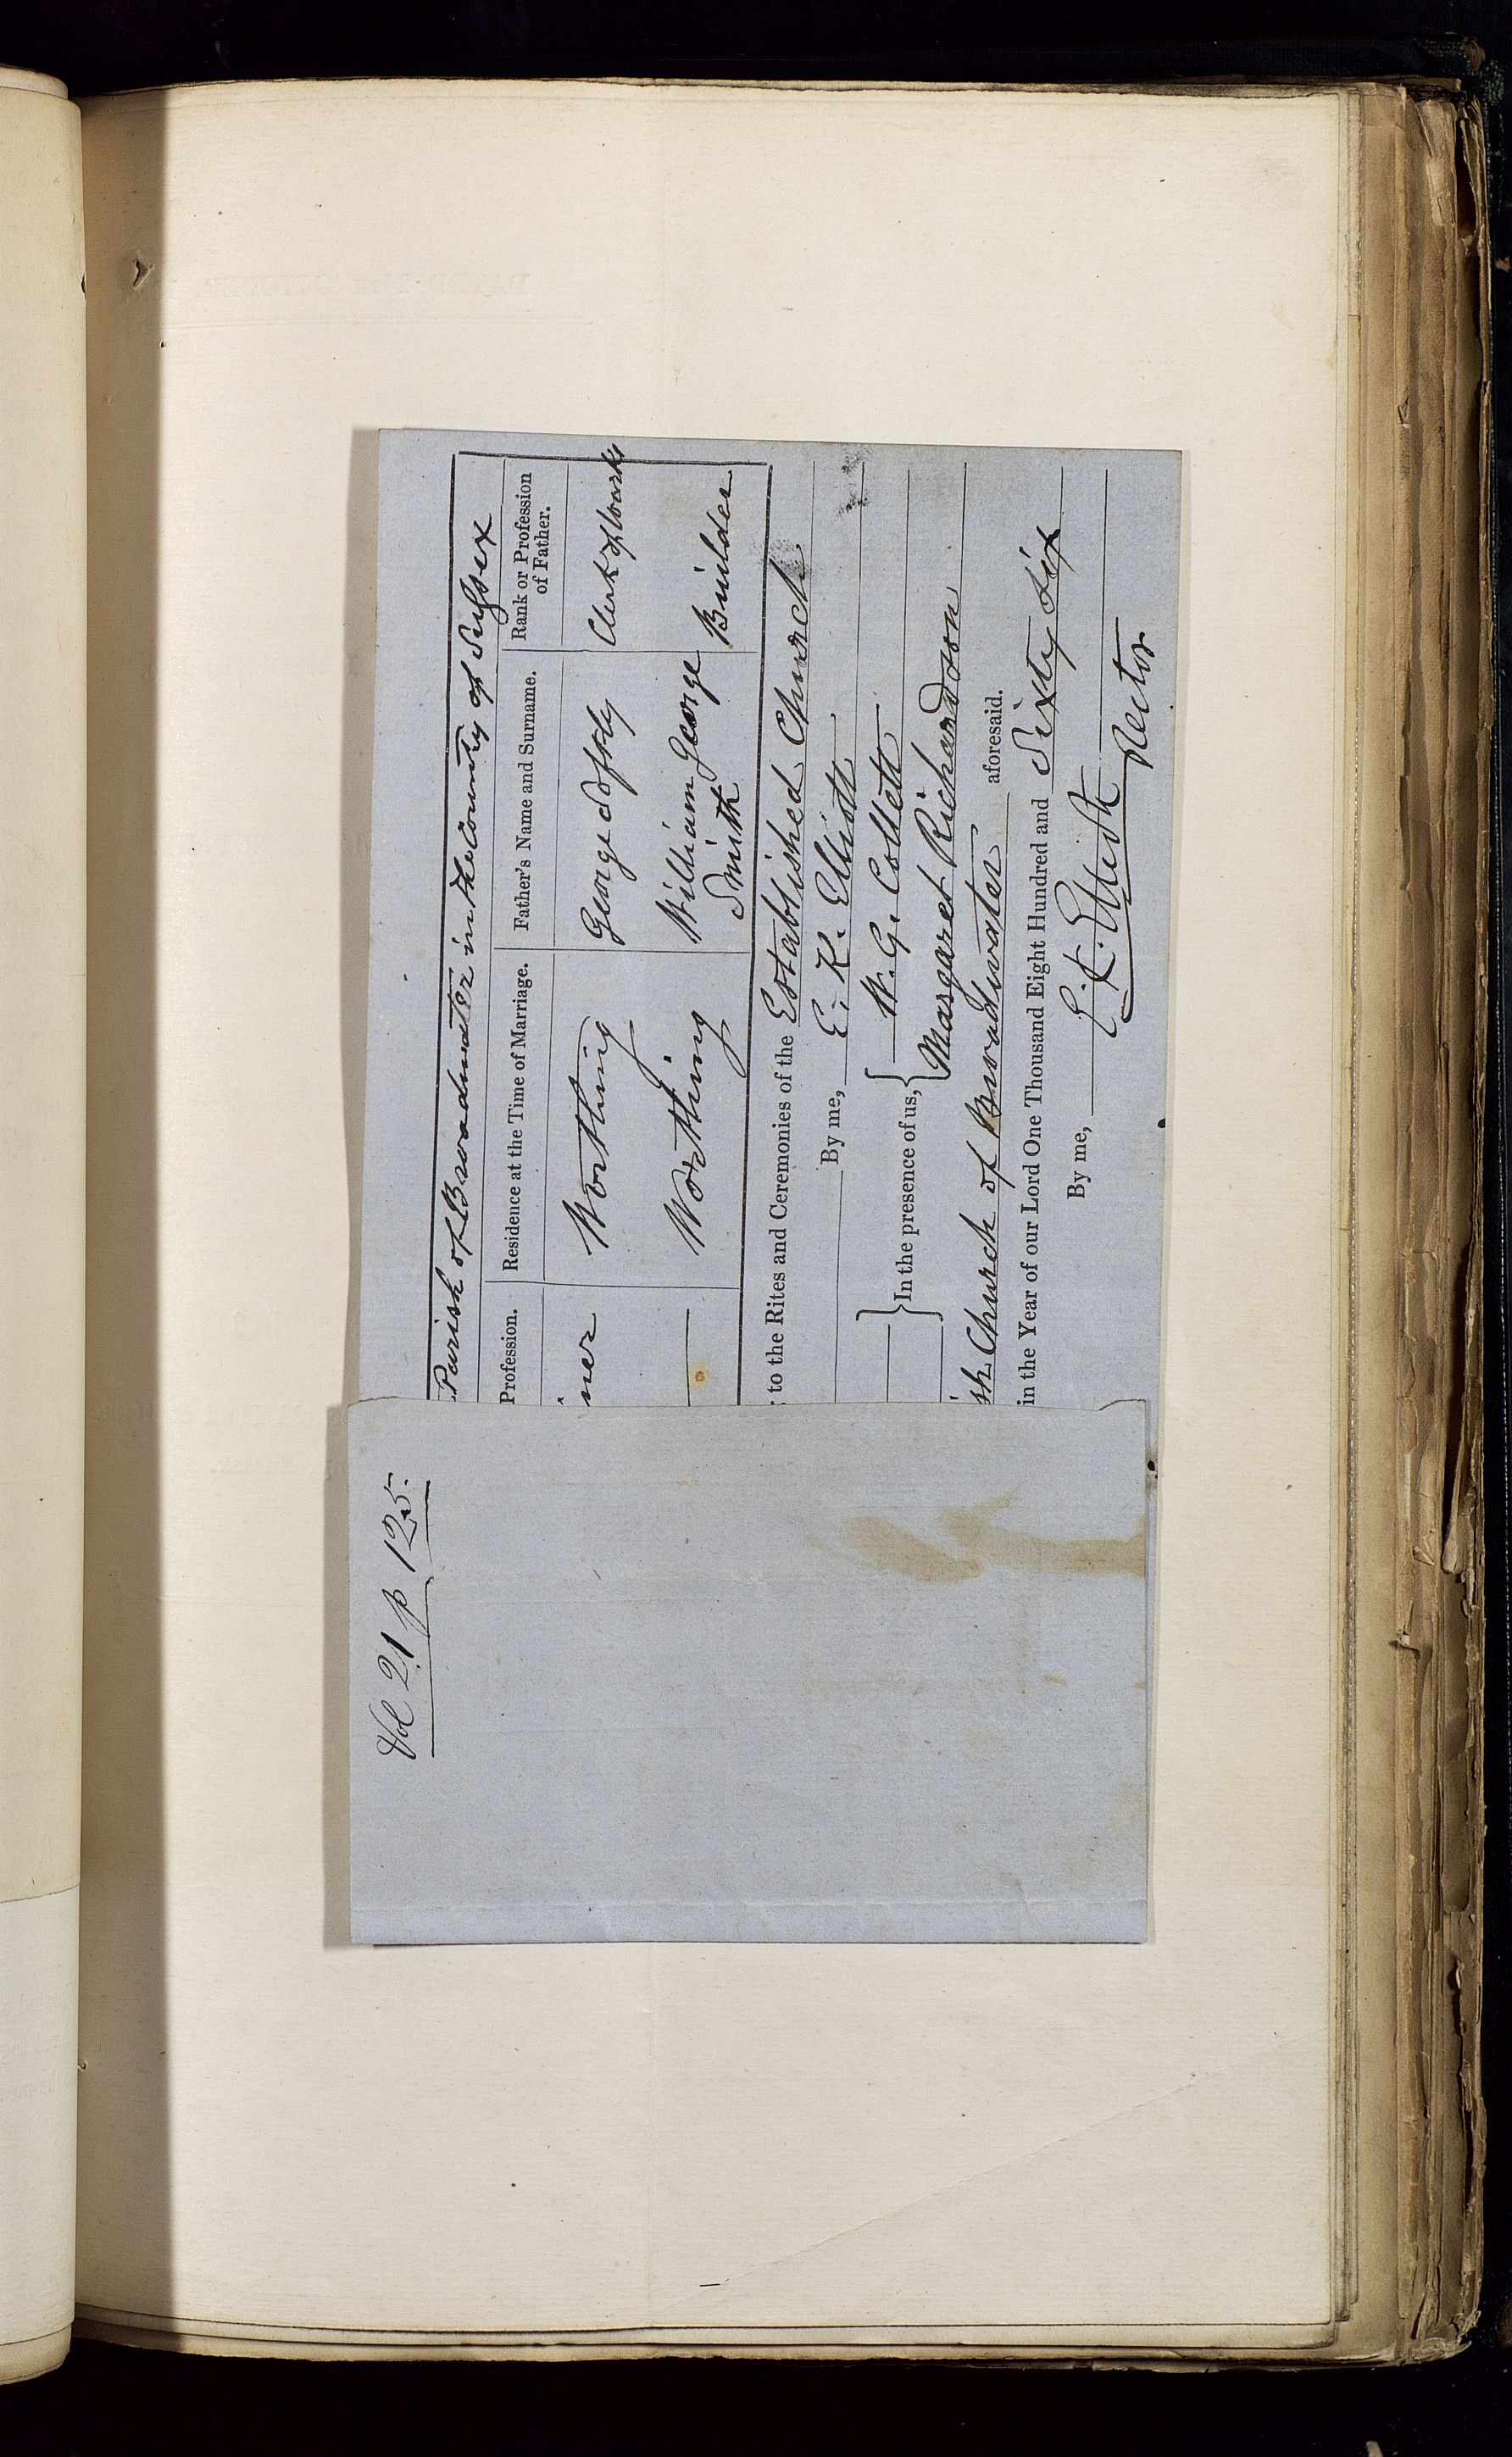 Vol 21 p 125.
Parish of Broadwater in the County of Sussex
Profession. Residence at the Time of Marriage. Father's Name and Surname. Rank or Profession of Father.
iner Worthing George Softly Clerk of Works
— Worthing William George Smith Builder
to the Rites and Ceremonies of the Established Church
By me, E. K. Elliott
In the presence of us, W. G. Collett
Margaret Richardson
sh Church of Broadwater aforesaid.
in the Year of our Lord One Thousand Eight Hundred and Sixty Six
By me, E. K. Elliott
Rector